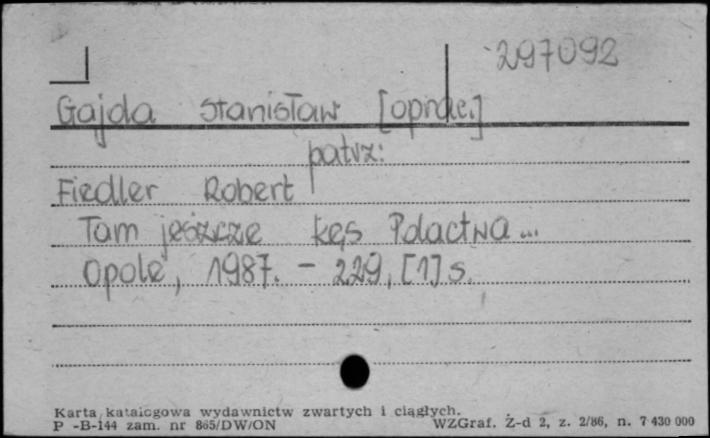 297092
Gajda Stanisław [oprac.]
patrz:
Fiedler Robert
Tam jeszcze kęs Polactwa...
Opole, 1987. - 229, [1] s.
Karta katalogowa wydawnictw zwartych i ciągłych.
P -B-144 zam. nr 865/DW/ON WZGraf. Ż-d 2, z. 2/86, n. 7 430 000